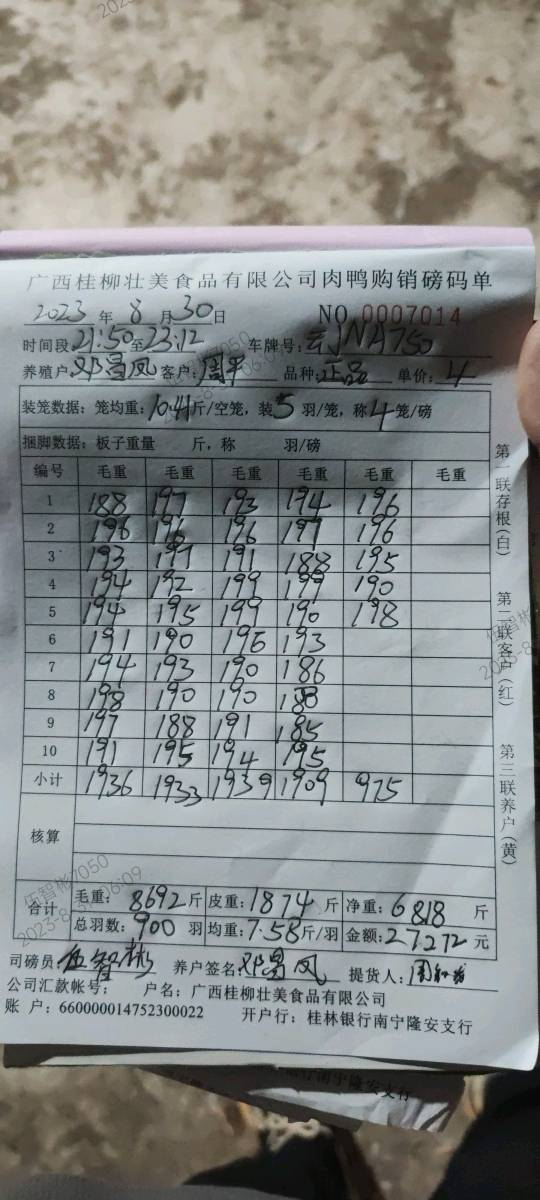 广西桂柳壮美食品有限公司肉鸭购销磅码单
2023 年 8 月 30 日 NO 0007014
时间段 21:50 至 23:12 车牌号: NA750
养殖户 邓昌凤 客户: 周平 品种: 正品 单价: 4
装笼数据: 笼均重: 10.41 斤/空笼, 装 5 羽/笼, 称 4 笼/磅
捆脚数据: 板子重量 斤, 称 羽/磅
编号 毛重 毛重 毛重 毛重 毛重 毛重
1 188 197 193 194 196
2 196 196 196 197 196
3 193 197 191 188 195
4 194 192 199 199 190
5 194 195 199 190 198
6 191 190 196 193
7 194 193 190 186
8 198 190 190 188
9 197 188 191 185
10 191 195 194 195
小计 1936 1933 1939 1909 975
核算
合计 毛重: 8692 斤 皮重: 1874 斤 净重: 6818 斤
总羽数: 900 羽 均重: 7.58 斤/羽 金额: 27272 元
司磅员: 伍智彬 养户签名: 邓昌凤 提货人:
公司汇款帐号: 户名: 广西桂柳壮美食品有限公司
账 户: 660000014752300022 开户行: 桂林银行南宁隆安支行
第一联存根(白)
第二联客户(红)
第三联养户(黄)
伍智彬7050
2023-8-31 06:09
桂林银行南宁隆安支行